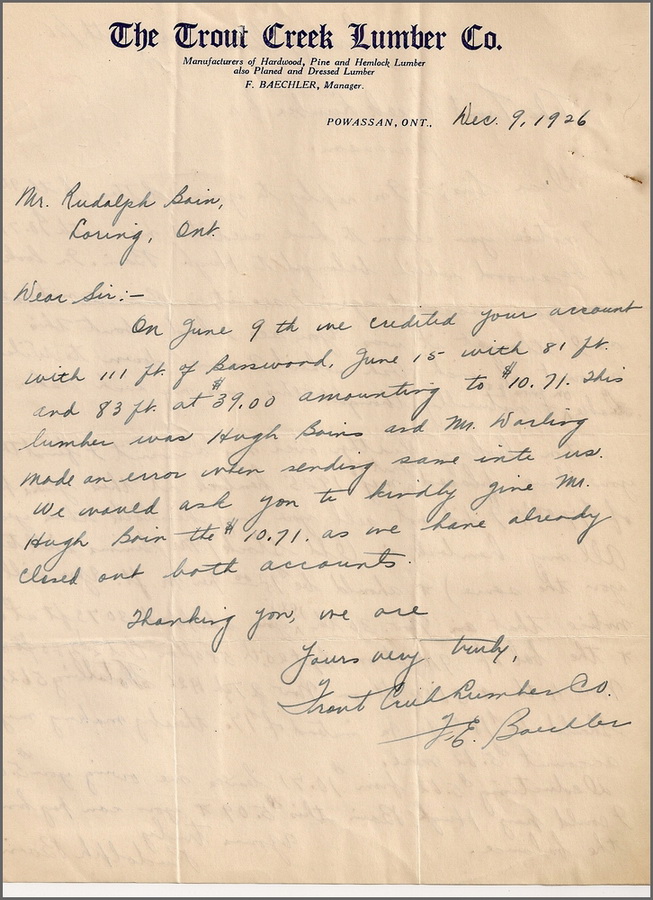 The Trout Creek Lumber Co.
Manufacturers of Hardwood, Pine and Hemlock Lumber
also Planed and Dressed Lumber
F. BAECHLER, Manager.
POWASSAN, ONT., Dec. 9, 1926
Mr. Rudolph Bain,
Loring, Ont.
Dear Sir:—
On June 9th we credited your account
with 111 ft. of Basswood, June 15 with 81 ft.
and 83 ft. at $39.00 amounting to $10.71. This
lumber was Hugh Bains and Mr. Warling
made an error when sending same into us.
We would ask you to kindly give Mr.
Hugh Bain the $10.71. as we have already
closed out both accounts.
Thanking you, we are
Yours very truly,
Trout Creek Lumber Co.
F.E. Baechler